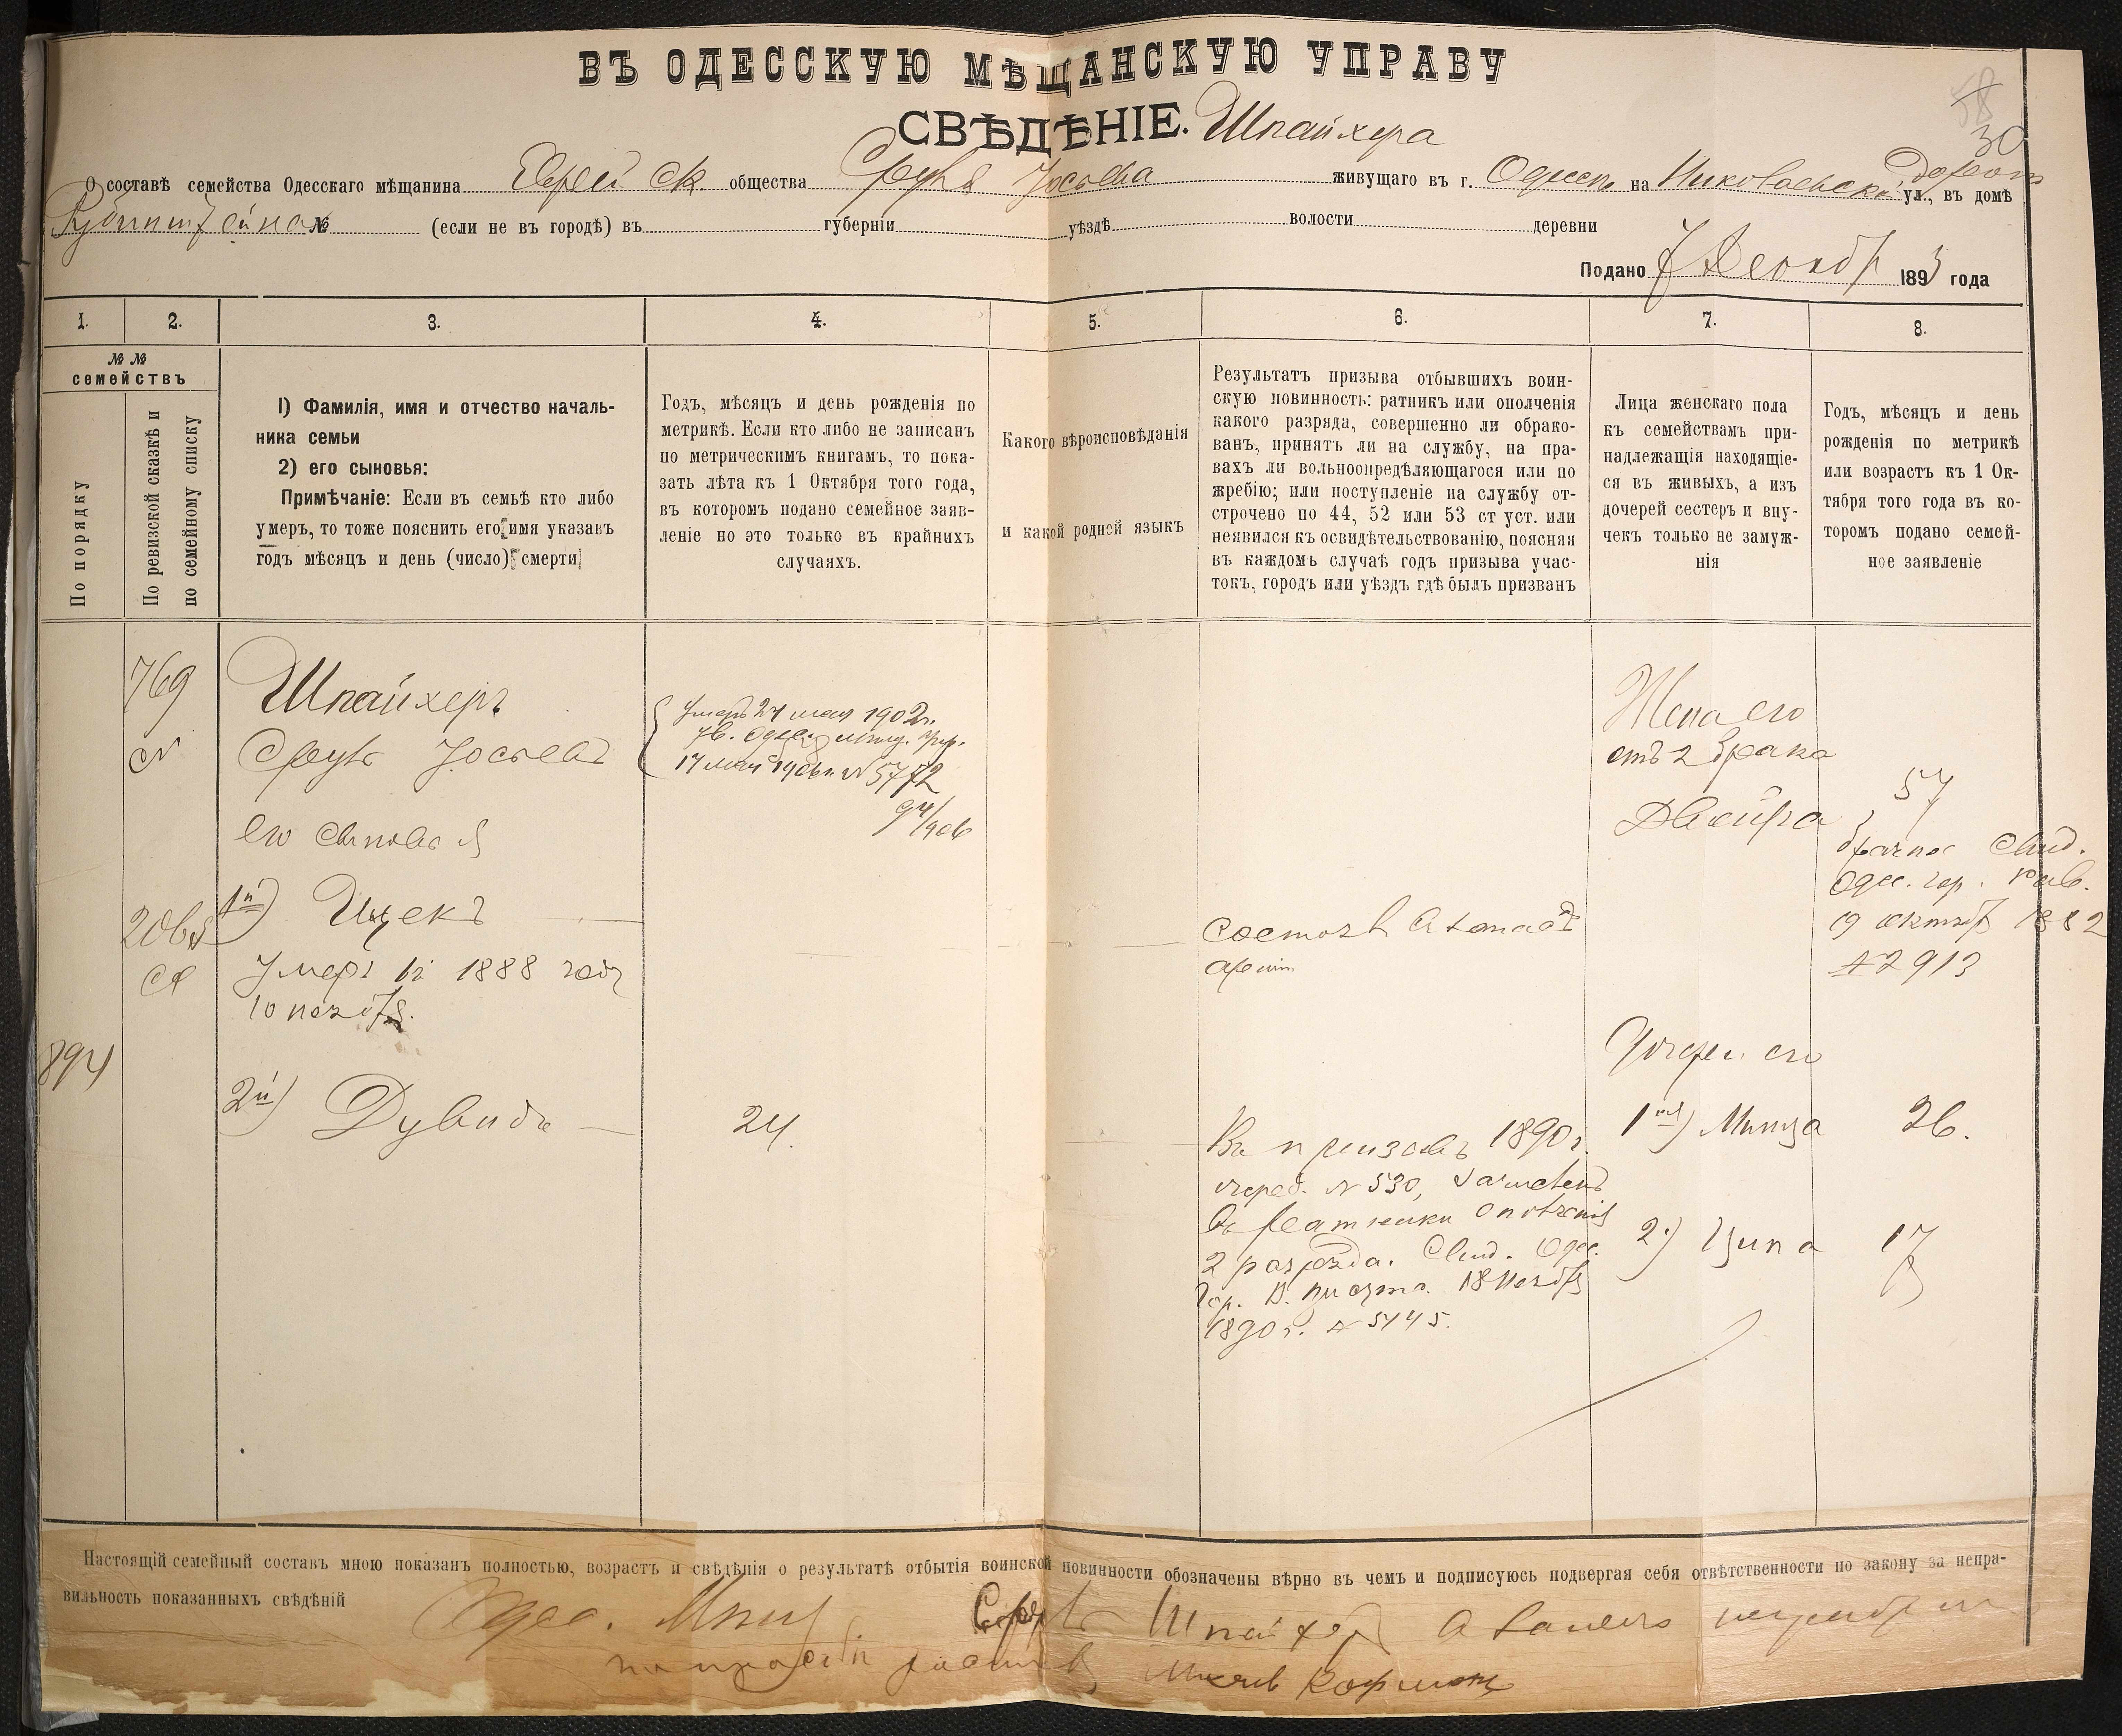 ВЪ ОДЕССКУЮ МѢЩАНСКУЮ УПРАВУ
СВѢДѢНІЕ. Шпайхера
58
30
О составѣ семейства Одесскаго мѣщанина Еврейск. общества Сруль Іосьева живущаго въ г. Одессѣ на Николаевской ул., въ домѣ
Рубинштейна № (если не въ городѣ) въ губерніи уѣздѣ волости деревни
Подано 7 Декабр 1893 года
1. 2. 3. 4. 5. 6. 7. 8.
№ №
семействъ
По порядку
По ревизской сказкѣ и
по семейному списку
1) Фамилія, имя и отчество началь-
ника семьи
2) его сыновья:
Примѣчаніе: Если въ семьѣ кто либо
умеръ, то тоже пояснить его имя указавъ
годъ мѣсяцъ и день (число) смерти
Годъ, мѣсяцъ и день рожденія по
метрикѣ. Если кто либо не записанъ
по метрическимъ книгамъ, то пока-
зать лѣта къ 1 Октября того года,
въ которомъ подано семейное заяв-
леніе но это только въ крайнихъ
случаяхъ.
Какого вѣроисповѣданія
и какой родной языкъ
Результатъ призыва отбывшихъ воин-
скую повинность: ратникъ или ополченія
какого разряда, совершенно ли обрако-
ванъ, принятъ ли на службу, на пра-
вахъ ли вольноопредѣляющагося или по
жребію; или поступленіе на службу от-
строчено по 44, 52 или 53 ст уст. или
неявился къ освидѣтельствованію, поясняя
въ каждомъ случаѣ годъ призыва учас-
токъ, городъ или уѣздъ гдѣ былъ призванъ
Лица женскаго пола
къ семействамъ при-
надлежащія находящіе-
ся въ живыхъ, а изъ
дочерей сестеръ и вну-
чекъ только не замуж-
нія
Годъ, мѣсяцъ и день
рожденія по метрикѣ
или возрастъ къ 1 Ок-
тября того года въ ко-
торомъ подано семей-
ное заявленіе
769
Шпайхеръ
Сруль Іосьевъ
Умеръ 24 мая 1902г.
17 мая 1906г. № 5772
94/906
Жена его
отъ 2 брака
Двейра
57
брачное Свид.
Одес. гор. Рав.
9 октября 1882
№ 2913
его сыновья
1й) Ицекъ
Умеръ въ 1888 году
10 ноября.
894
2й) Дувидъ
24.
Въ призывъ 1890г.
жреб. № 530, зачисленъ
въ ратники ополченія
2 разряда. Свид. Одес.
Гор. В. присутс. 18 Ноября
1890г. № 5145.
Дочери его
1ая) Минца 26.
2.) Ципа 17
Настоящій семейный составъ мною показанъ полностью, возрастъ и свѣдѣнія о результатѣ отбытія воинской повинности обозначены вѣрно въ чемъ и подписуюсь подвергая себя отвѣтственности по закону за непра-
вильность показанныхъ свѣдѣній
Одес. Мѣщ Сруль Шпайхеръ а за него неграмотн
по просьбѣ